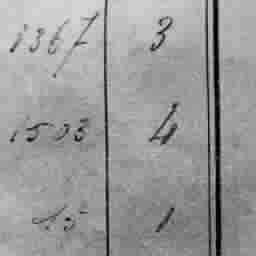 1367 3
1503 4
15 1